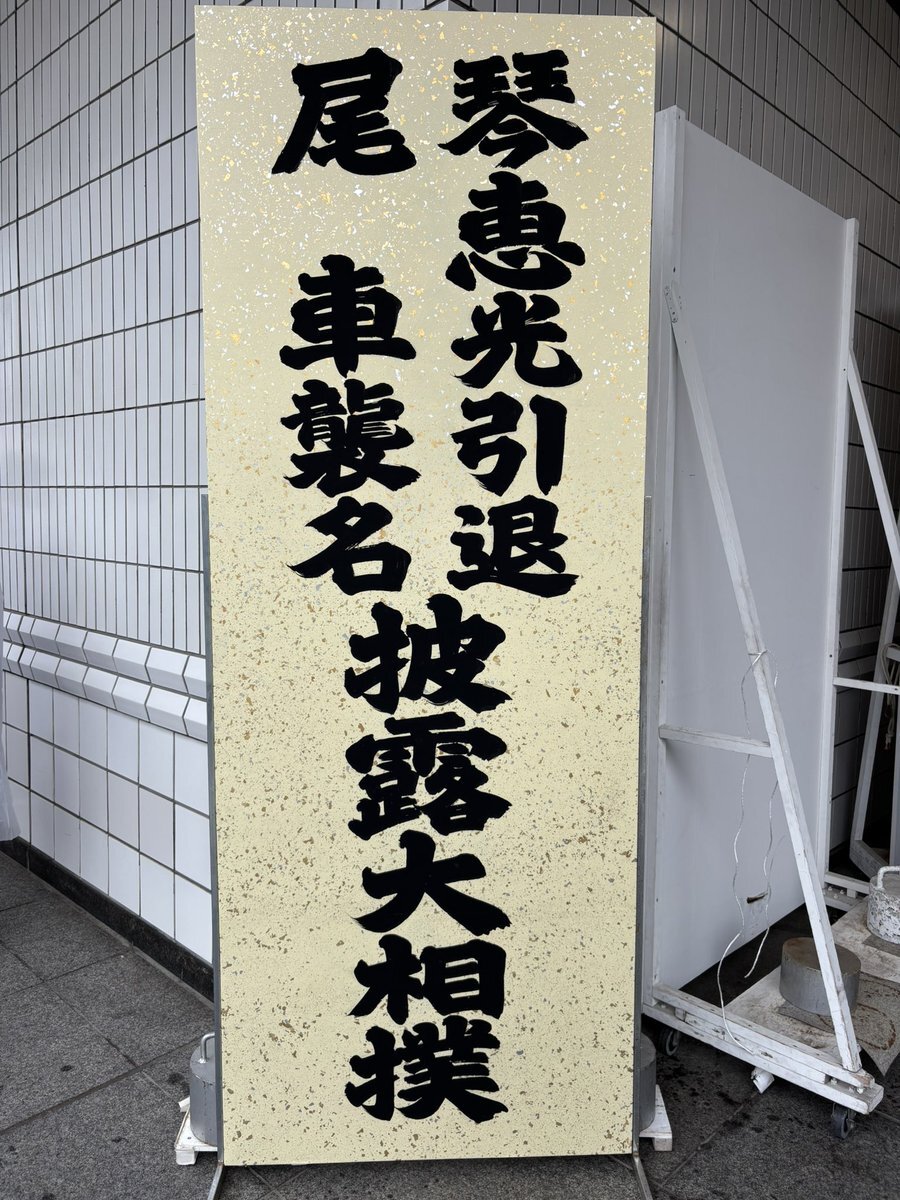 琴恵光引退
尾車襲名
披露大相撲